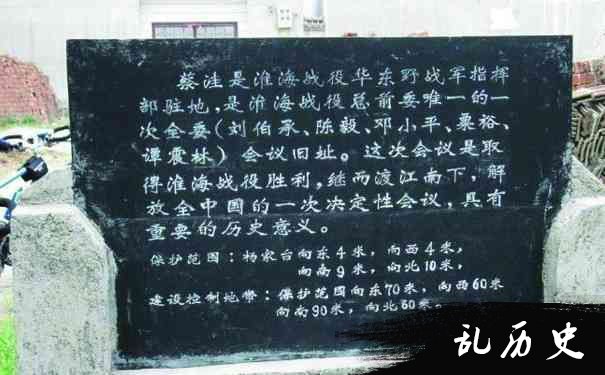 蔡洼是淮海战役华东野战军指挥
部驻地，是淮海战役总前委唯一的一
次全委（刘伯承、陈毅、邓小平、粟裕、
谭震林）会议旧址。这次会议是取
得淮海战役胜利，继而渡江南下，解
放全中国的一次决定性会议，具有
重要的历史意义。
保护范围：杨家台向东4米，向西4米，
向南9米，向北10米，
建设控制地带：保护范围向东70米，向西60米
向南90米，向北60米。
乱历史